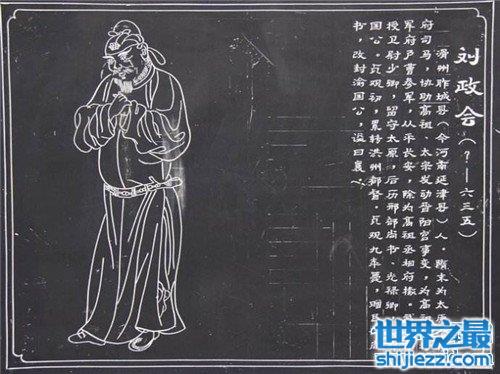 刘政会(?—六三五)
滑州胙城县(今河南延津县)人。隋末为太原
府司马,协助高祖、太宗发动晋阳宫事变,为高祖
军府户曹参军,从平长安,除为高祖丞相府掾。
授卫尉少卿,留守太原,后历刑部尚书、光禄卿,
国公。贞观初,累转洪州都督。贞观九年薨,赠民
书,改封渝国公,谥曰襄。
世界之最
shijiezz.com